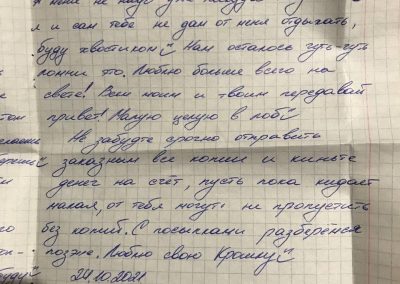 я и сам тебе не дам от меня отдыхать,
буду хвостиком Нам осталось чуть-чуть
помни это. Люблю больше всего на
свете! Всем моим и твоим передавай
привет! Малую целую в лоб
Не забудьте срочно отправить
заказным все копии и киньте
денег на счёт, пусть пока кидает
малая, от тебя могут не пропустить
без копий. С посылками разберёмся
позже. Люблю свою Крошку
24.10.2021